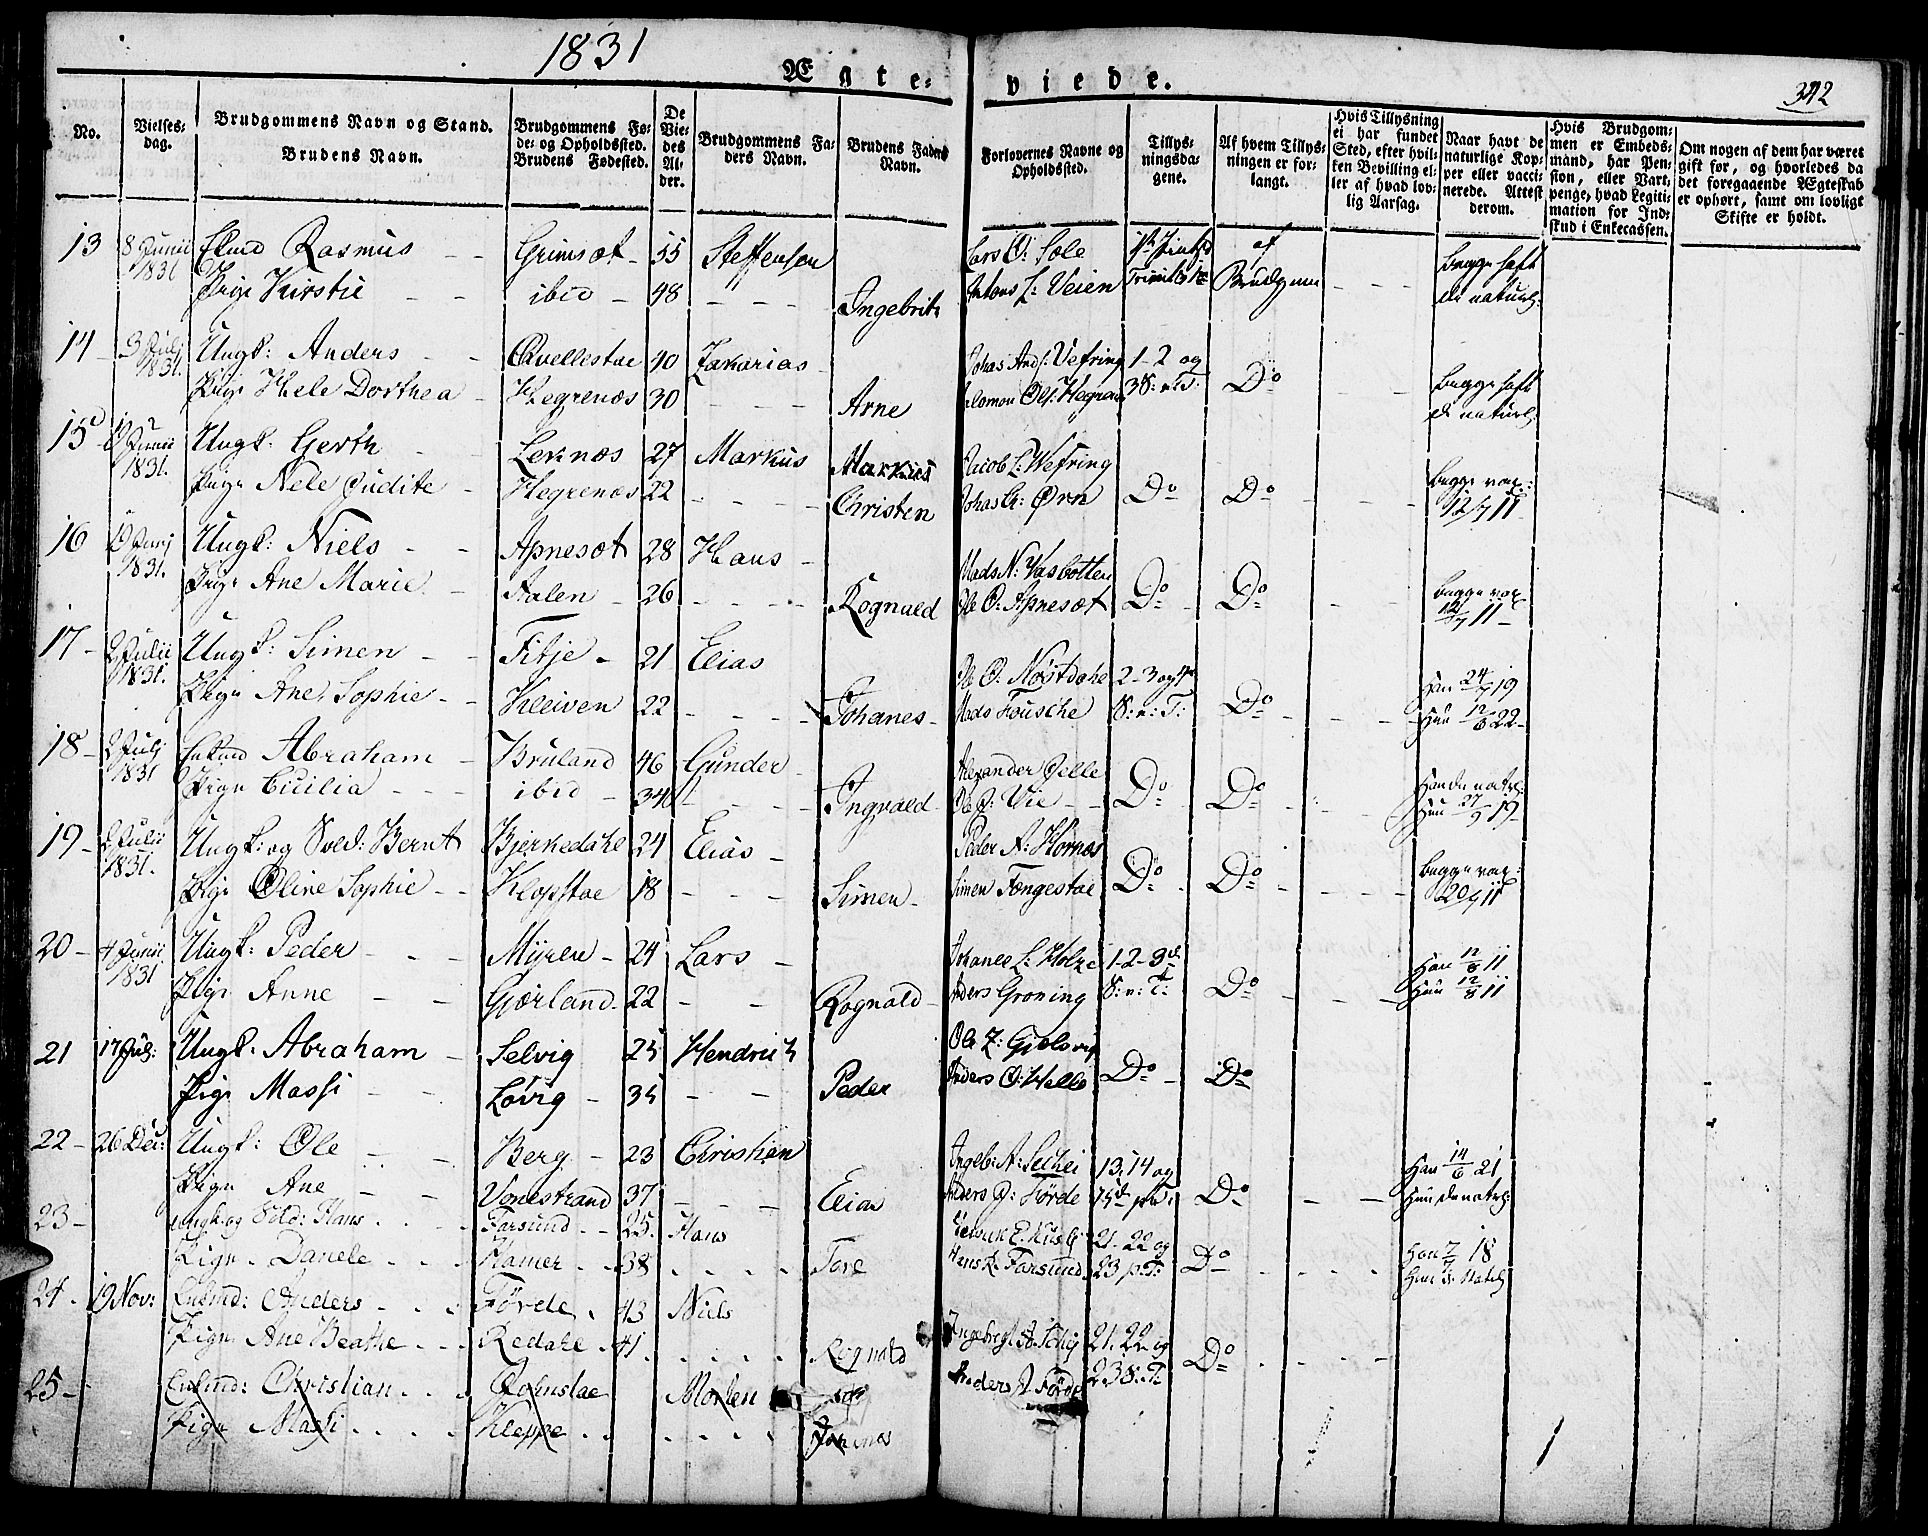 1831
Ægteviede.
342
No.
Vielsesdag.
Brudgommens Navn og Stand.
Brudens Navn.
Brudgommens Føde- og Opholdssted.
Brudens Fødested.
De Viedes Alder.
Brudgommens Faders Navn.
Brudens Faders Navn.
Forlovernes Navne og Opholdsted.
Tillysningsdagene.
Af hvem Tillysningen er forlangt.
Hvis Tillysning ei har fundet Sted, efter hvilken Bevilling eller af hvad lovlig Aarsag.
Naar havt de naturlige Kopper eller vaccinerede. Attest derom.
Hvis Brudgommen er Embedsmand, har Pension, eller Vartpenge, hvad Legitimation for Indskud i Enkecassen.
Om nogen af dem har været gift før, og hvorledes da det foregaaende Ægteskab er ophørt, samt om lovligt Skifte er holdt.
13 8 Junii 1831 Rasmus Grimsæt 55 Steffenson Lars O: Sole af begge haft
Pige Kirstie ibid 48 Ingebrit Antons L: Veien Brudgm de naturl:
14 3 Julj 1831. Ungk: Anders Qvellestae 40 Zakarias Johas And: Vefring 1-2 og begge haft
Pige Dorthea Hegrenæs 30 Arne Salomon Ols: Hegrenæs 3 S: n: T: Do de naturl:
15 Junii 1831. Ungk: Gerth Leknæs 27 Markus Markus Jacob L: Wefring begge vax:
Pige Nele Judite Hegrenæs 22 Christen Johas Ørn Do Do 12/7 11
16 19 Junj 1831. Ungk: Niels Apnesæt 28 Hans Mads N: Vasbotten begge vax:
Pige Ane Marie Aalen 26 Rognald Ole O: Apnesæt Do Do 12/7 11
17 2 Julii 1831. Ungk: Simen Fitje 21 Elias Ole O: Nøstdahl 2-3 og 4de Han 24/7 19
Pige Ane Sophie Kleiven 22 Johanes Mads Fousche S: n: T: Do Hun 12/8 22
18 2 Julj 1831 Enkmd Abraham Bruland 46 Gunder Alexander Qelle Han de natrl:
Pige Cicilia ibid 34 Ingvald Ole J: Vie Do Do Hun 27/9 19
19 2 Julii 1831. Ungk: og Sold: Bernt Bjerkedahl 24 Elias Peder A: Hornæs begge vax:
Pige Oline Sophie Klopstae 18 Simen Simen Tængestae Do Do 20/7 11
20 4 Junii 1831 Ungk: Peder Myren 24 Lars Johanes L: 1-2-3d Han 12/8 11
Pige Anne Gjørland 22 Rognald Anders Groning S: n: T: Do Hun 12/8 11
21 17 Jul: Ungk: Abraham Selvig 25 Hendrich Ole Z: Gjelsvig
Pige Massi Løvig 35 Peder Anders O: Helle Do Do
22 26 Dec: Ungk: Ole Berg 23 Christian Ingeb: A: 13, 14 og Han 14/6 21
Pige Ane Vonestrand 37 Elias Anders J: Førde 15d p: T: Do Hun de natrl:
23 Ungk: og Sold: Hans Farsund 25. Hans 21. 22 og Han 7/7 18
Pige Danele Hamer 38 Tore Hans Farsund 23 p: T: Do Hun d: Natrl:
24 19 Nov: Enkmd: Anders Førde 43 Niels Ingebregt 21. 22 og
Pige Ane Beathe Redahl 41 Rognald Anders J Førde 23 S: T: Do
25 Enkmd: Christian Johnstae Morten
Pige Massi Kleppe Johanes